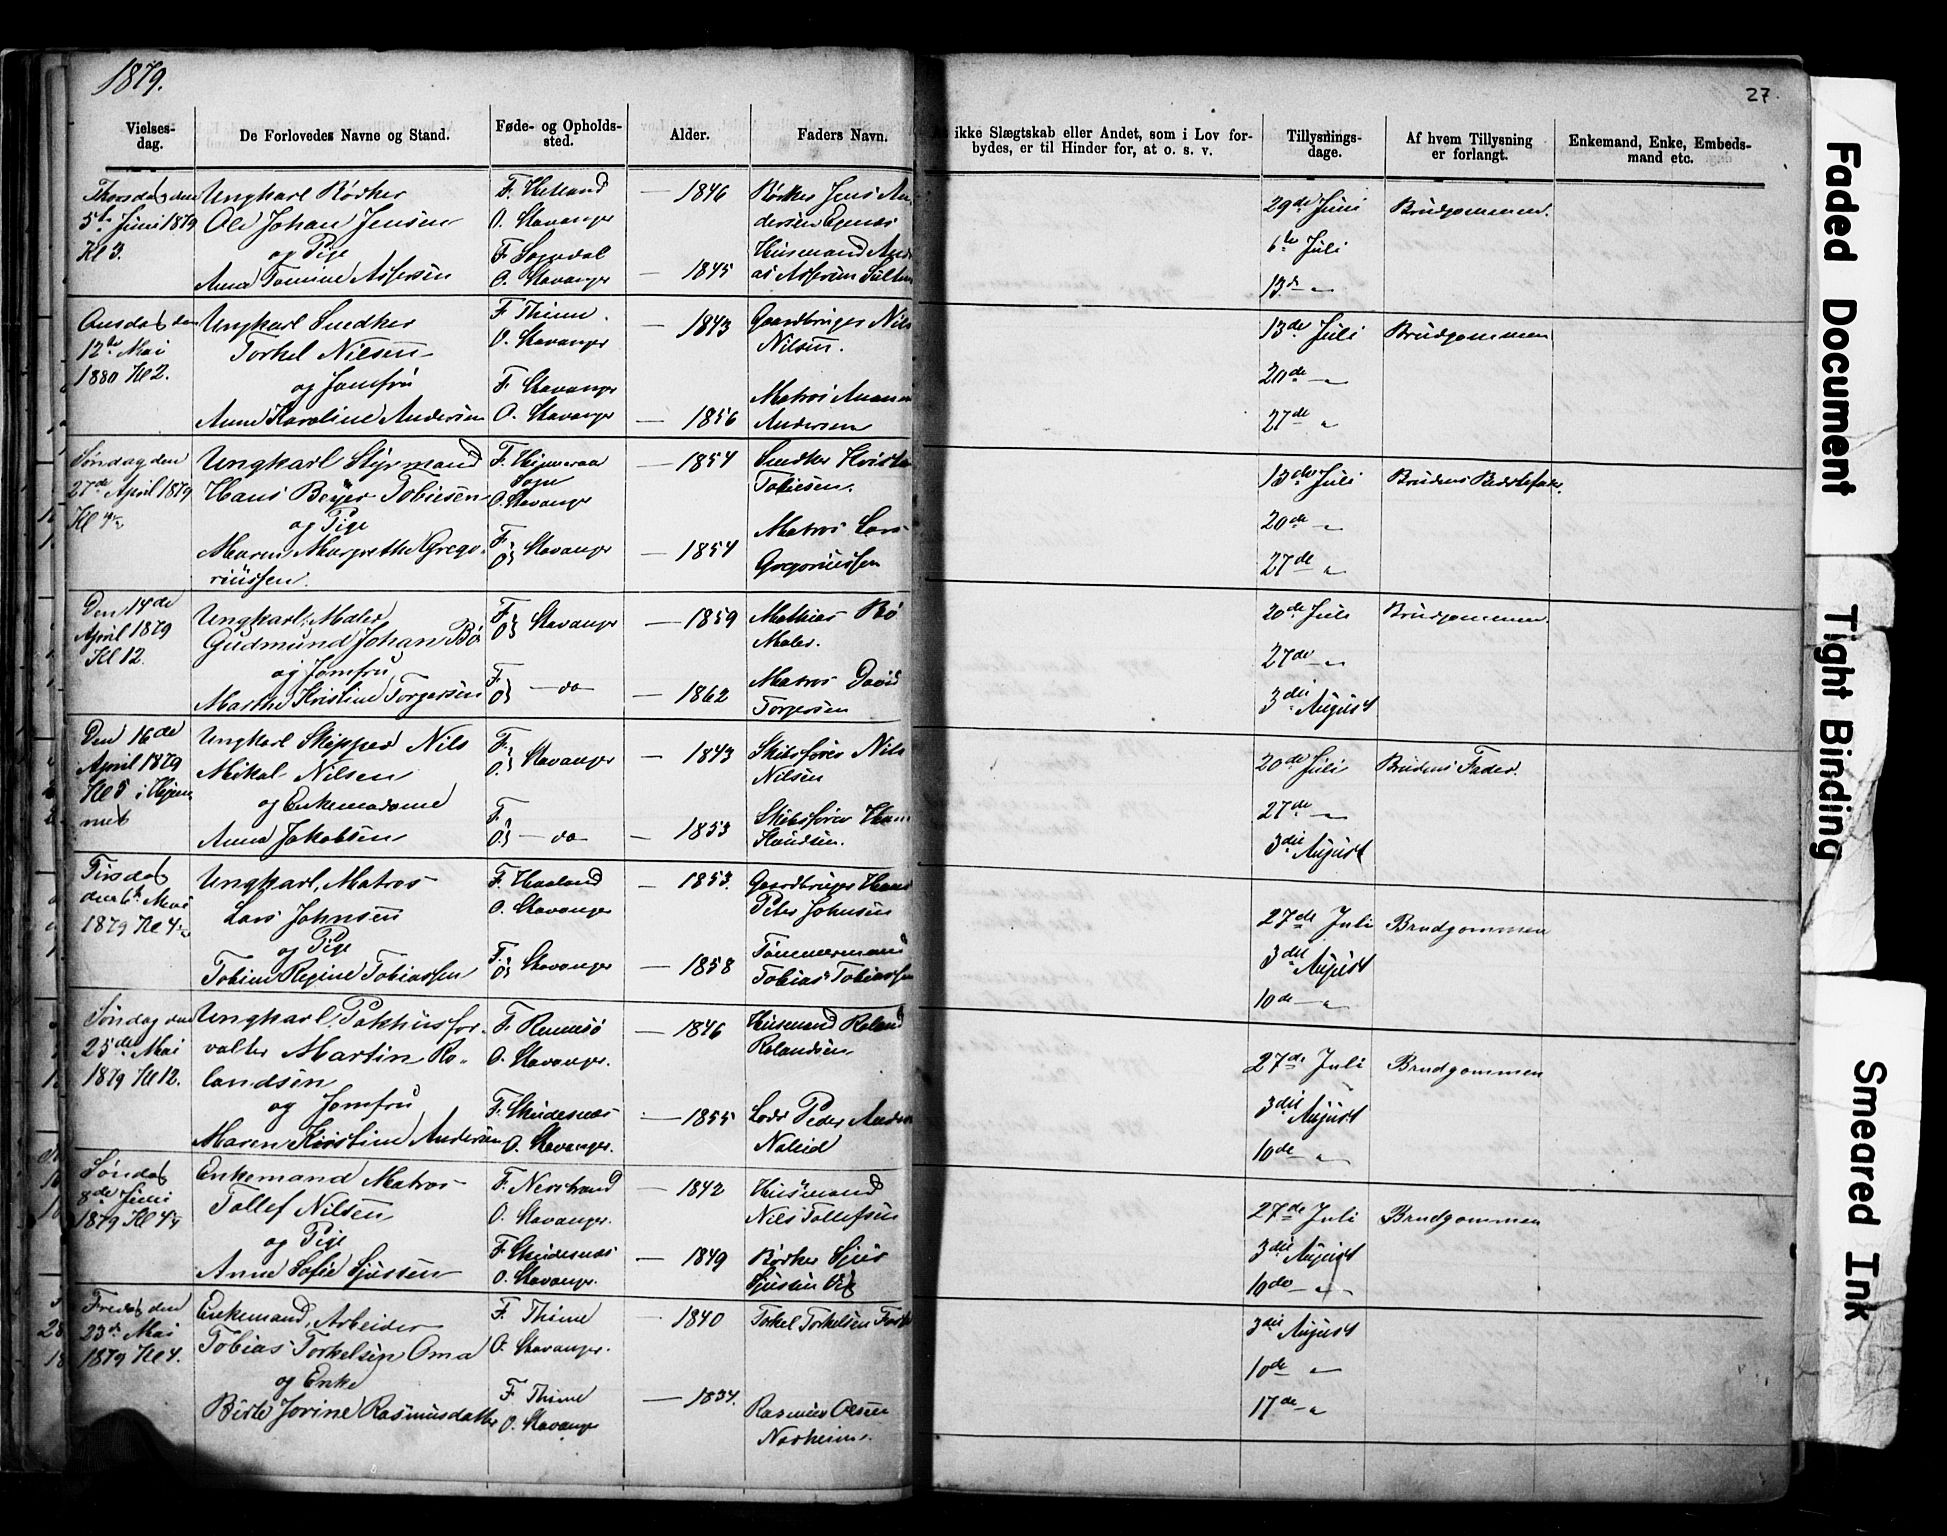 1879.
27.
Vielses-
dag.
De Forlovedes Navne og Stand.
Føde- og Opholds-
sted.
Alder.
Faders Navn.
ikke Slægtskab eller Andet, som i Lov for-
bydes, er til Hinder for, at o. s. v.
Tillysnings-
dage.
Af hvem Tillysning
er forlangt.
Enkemand, Enke, Embeds-
mand etc.
Thorsdag den
5te Juni 1879
Kl 3.
Ungkarl Bødker
Ole Johan Jensen
og Pige
Anna Tomine Assersen
F. Hetland
O. Stavanger
F. Sogndal
O. Stavanger
— 1846
— 1845
Bødker Jens An
dersen Egenæs
Husmand And
as Assersen
29de Juni
6te Juli
13de "
Brudgommen.
Onsdag den
12te Mai
1880 Kl 2.
Ungkarl Snedker
Torkel Nilsen
og Jomfru
Anna Karoline Andersen
F. Thime.
O. Stavanger
F. Stavanger
O. Stavanger
— 1843
— 1856
Gaardbruger Nils
Nilsen.
Matros
Andersen
13de Juli
20de "
27de "
Brudgommen
Søndag den
27de April 1879
Kl 4½
Ungkarl Styrmand
Hans Beyer Tobiesen
og Pige
Maren Margrethe Grego-
riussen.
F.
Sogn
O. Stavanger
F.
O. Stavanger
— 1854
— 1854
Snedker
Tobiesen.
Matros Lars
Gregoriussen
13de Juli
20de "
27de "
Brudens
Den 14de
April 1879
Kl 12.
Ungkarl, Maler
Gudmund Johan Bø
og Jomfru
Marthe Kristine Torgersen
F.
O. Stavanger
F.
O. — do
— 1859
— 1862
Mathias Bø
Maler.
Matros David
Torgersen
20de Juli
27de "
3die August
Brudgommen
Den 16de
April 1879
Kl 5 i Hjem
met
Ungkarl Skipper Nils
Mikal Nilsen
og Enkemadame
Anna Jakobsen
F.
O. Stavanger
F.
O. — do
— 1843
— 1853
Skibsfører Nils
Nilsen
Skibsfører Hans
Knudsen.
20de Juli
27de "
3die August
Brudens Fader.
Tirsdag
den 6te Mai
1879 Kl 4½
Ungkarl, Matros
Lars Johnsen
og Pige
Tobine Regine Tobiassen
F. Haaland
O. Stavanger
F.
O. Stavanger
— 1853.
— 1858
Gaardbruger Hans
Peter Johnsen
Tømmermand
Tobias Tobiassen
27de Juli
3die August
10de "
Brudgommen
Søndag den
25de Mai
1879 Kl 12.
Ungkarl, Pakhusfor-
valter Martin Ro-
landsen
og Jomfru
Maren Kirstine Andersen
F. Rennesø
O. Stavanger.
F. Skudesnæs
O. Stavanger.
— 1846
— 1855
Husmand Roland
Rolandsen
Lods Peder Anders
27de Juli
3die August
10de "
Brudgommen
Søndag
8de Juni
1879 Kl 4½
Enkemand Matros
Tollef Nilsen
og Pige
Anne Sofie Sjursen
F. Nerstrand
O. Stavanger.
F. Skudesnæs
O. Stavanger.
— 1842
— 1849
Husmand
Nils Tollefsen
Bødker Sjur
Sjursen
27de Juli
3die August
10de "
Brudgommen
Fredag den
23de Mai
1879 Kl 4.
Enkemand, Arbeider
Tobias Torkelsen Oma
og Enke
Birte Jorine Rasmusdatter
F. Thime
O. Stavanger.
F. Thime
O. Stavanger
— 1840
— 1834.
Torkel Torkelsen
Rasmus Olsen
Norheim.
3die August
10de "
17de "
Faded Document
Tight Binding
Smeared Ink